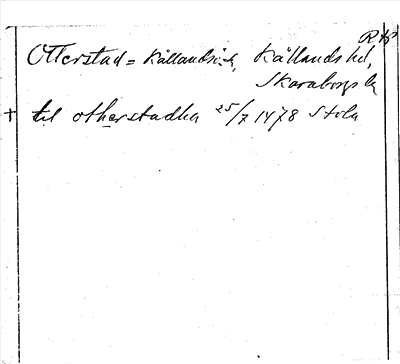 Otterstad = Källandsö sn, Kållands hd,
Skaraborgs l.
+ til otherstadha 25/7 1478 Stola